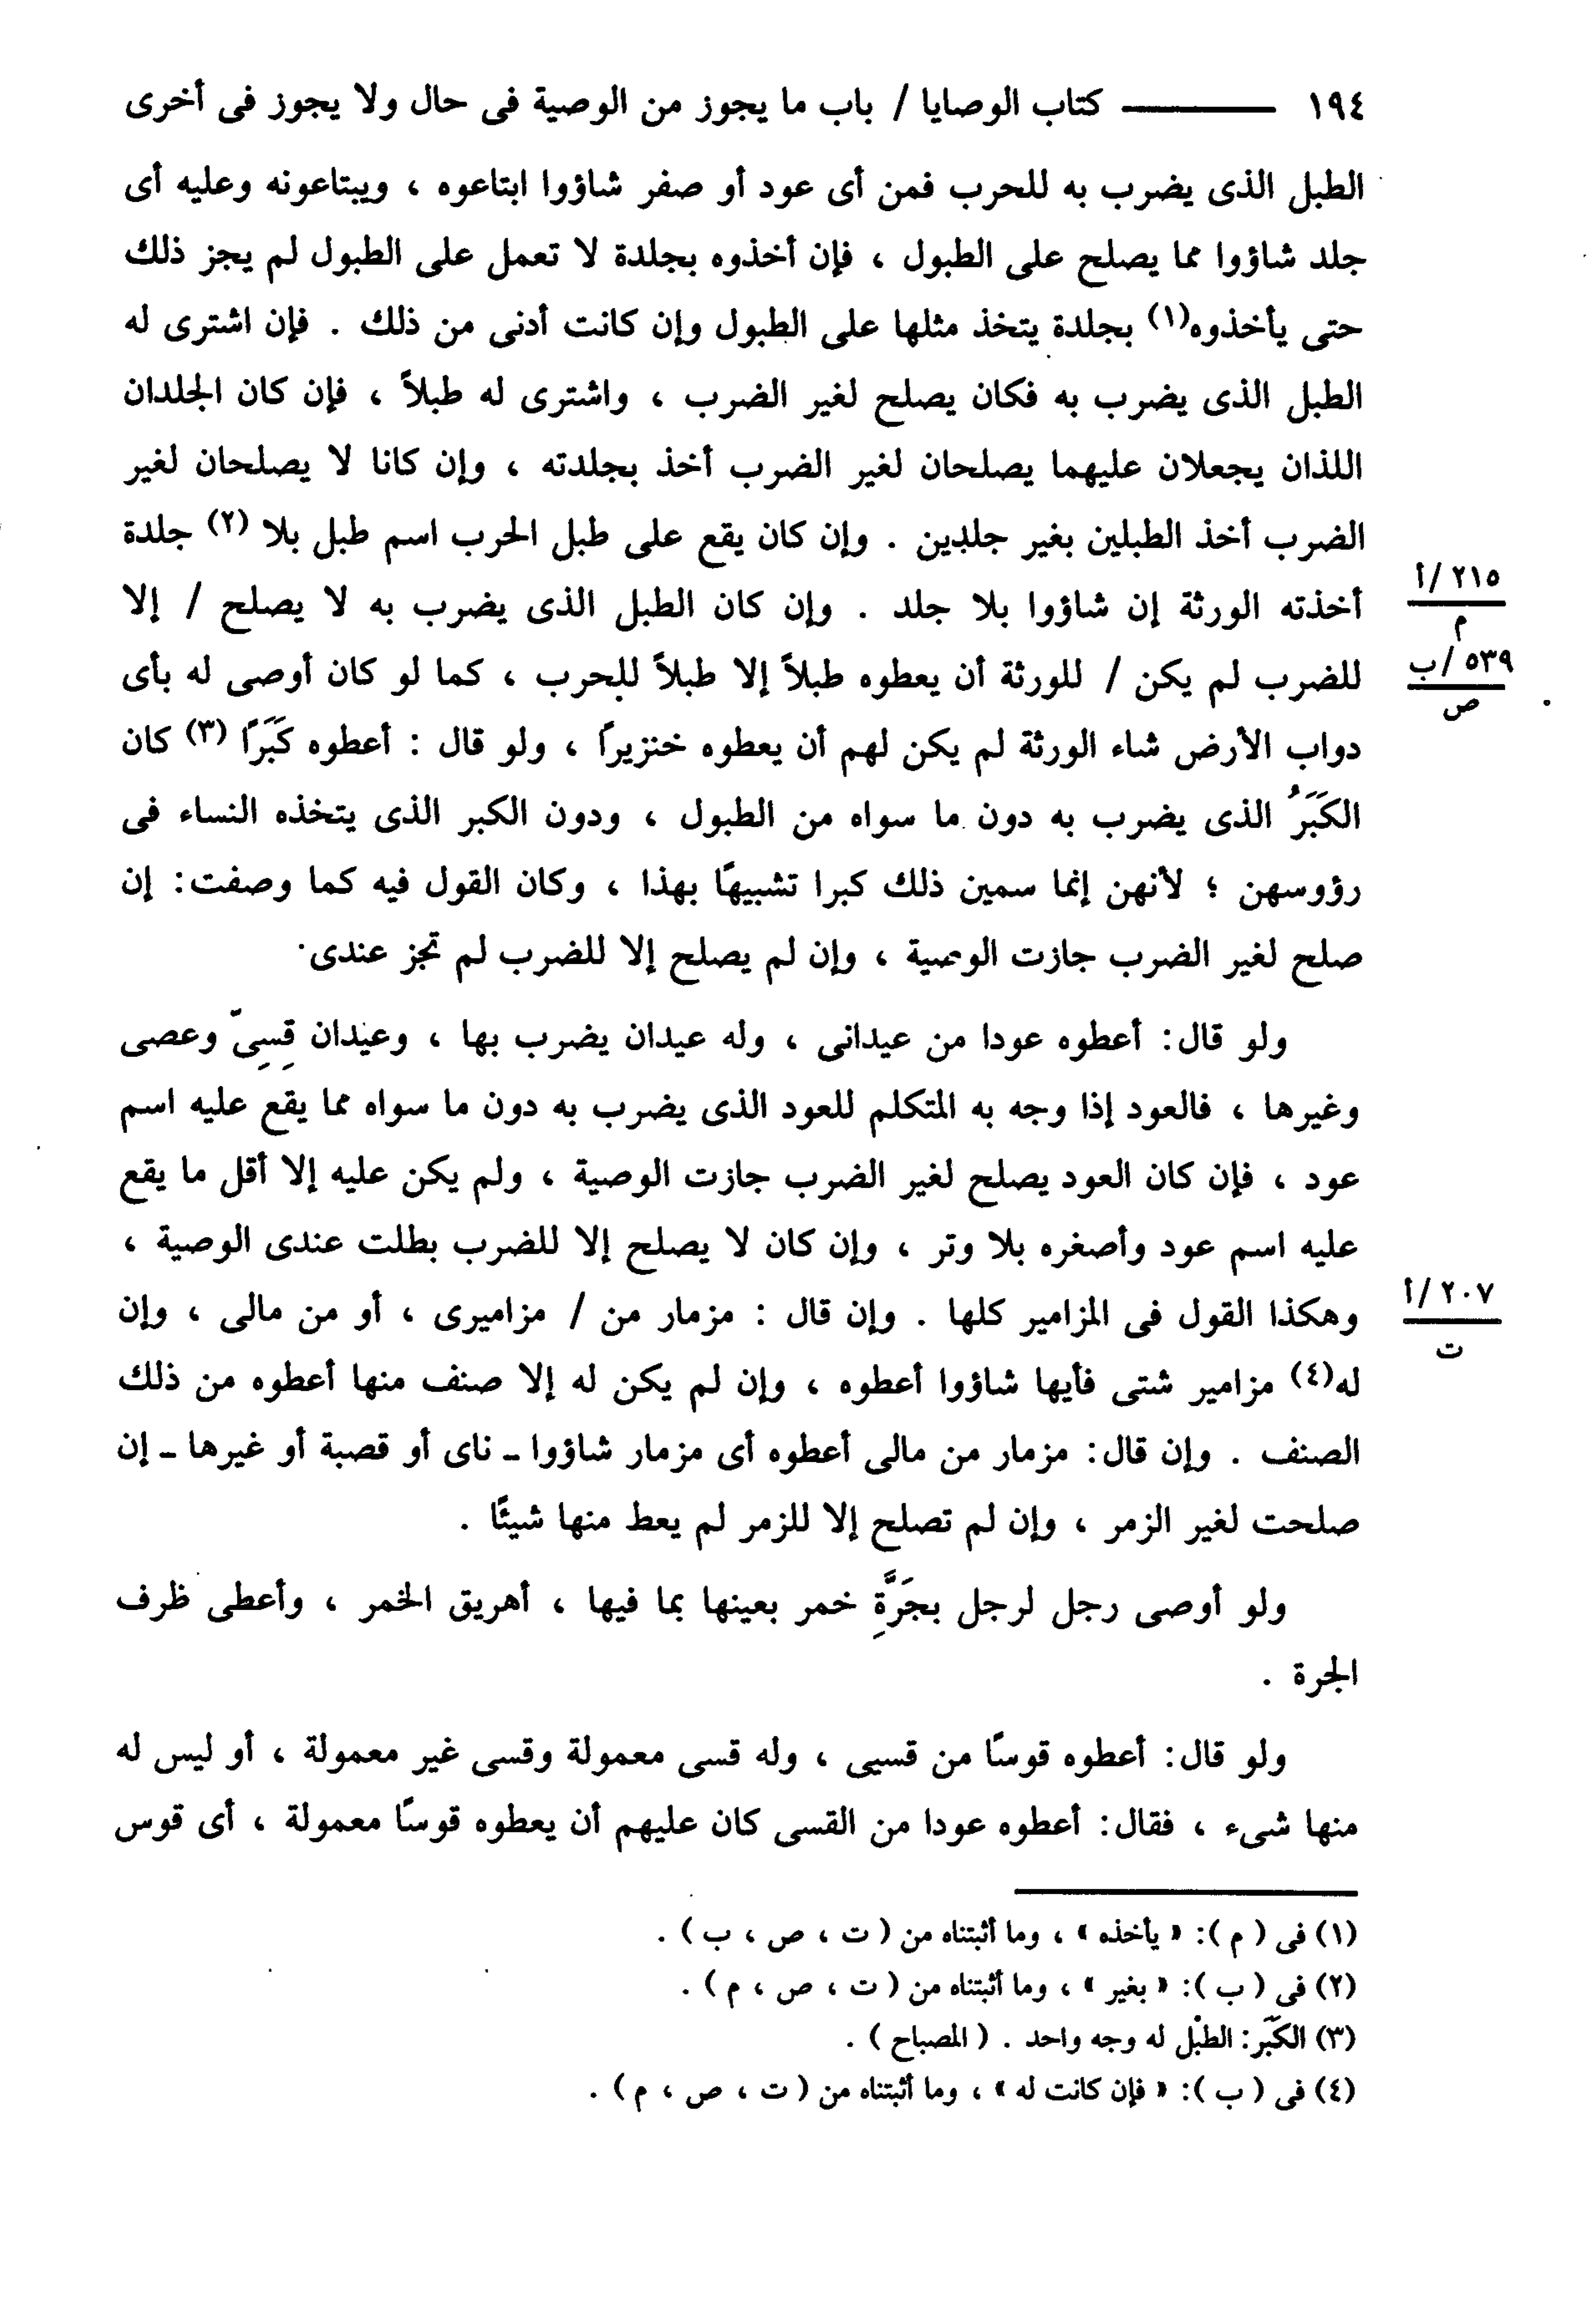 ١٩٤ ــــــــــ كتاب الوصايا / باب ما يجوز من الوصية فى حال ولا يجوز فى أخرى
الطبل الذى يضرب به للحرب فمن أى عود أو صفر شاؤوا ابتاعوه ، ويبتاعونه وعليه أى
جلد شاؤوا مما يصلح على الطبول ، فإن أخذوه بجلدة لا تعمل على الطبول لم يجز ذلك
حتى يأخذوه(١) بجلدة يتخذ مثلها على الطبول وإن كانت أدنى من ذلك . فإن اشترى له
الطبل الذى يضرب به فكان يصلح لغير الضرب ، واشترى له طبلاً ، فإن كان الجلدان
اللذان يجعلان عليهما يصلحان لغير الضرب أخذ بجلدته ، وإن كانا لا يصلحان لغير
الضرب أخذ الطبلين بغير جلدين . وإن كان يقع على طبل الحرب اسم طبل بلا (٢) جلدة
أخذته الورثة إن شاؤوا بلا جلد . وإن كان الطبل الذى يضرب به لا يصلح / إلا
٢١٥/أ
م
للضرب لم يكن / للورثة أن يعطوه طبلاً إلا طبلاً للحرب ، كما لو كان أوصى له بأى
٥٣٩/ب
ص
دواب الأرض شاء الورثة لم يكن لهم أن يعطوه خنزيراً ، ولو قال : أعطوه كَبَرًا (٣) كان
الكَبَرُ الذى يضرب به دون ما سواه من الطبول ، ودون الكبر الذى يتخذه النساء فى
رؤوسهن ؛ لأنهن إنما سمين ذلك كبرا تشبيهًا بهذا ، وكان القول فيه كما وصفت: إن
صلح لغير الضرب جازت الوصية ، وإن لم يصلح إلا للضرب لم تجز عندى .
ولو قال: أعطوه عودا من عيدانى ، وله عيدان يضرب بها ، وعيدان قِسِىّ وعصى
وغيرها ، فالعود إذا وجه به المتكلم للعود الذى يضرب به دون ما سواه مما يقع عليه اسم
عود ، فإن كان العود يصلح لغير الضرب جازت الوصية ، ولم يكن عليه إلا أقل ما يقع
عليه اسم عود وأصغره بلا وتر ، وإن كان لا يصلح إلا للضرب بطلت عندى الوصية ،
وهكذا القول فى المزامير كلها . وإن قال : مزمار من / مزاميرى ، أو من مالى ، وإن
٢٠٧/أ
ت
له(٤) مزامير شتى فأيها شاؤوا أعطوه ، وإن لم يكن له إلا صنف منها أعطوه من ذلك
الصنف . وإن قال: مزمار من مالى أعطوه أى مزمار شاؤوا ـ ناى أو قصبة أو غيرها ـ إن
صلحت لغير الزمر ، وإن لم تصلح إلا للزمر لم يعط منها شيئًا .
ولو أوصى رجل لرجل بجَرَّةِ خمر بعينها بما فيها ، أهريق الخمر ، وأعطى ظرف
الجرة .
ولو قال: أعطوه قوسًا من قسيى ، وله قسى معمولة وقسى غير معمولة ، أو ليس له
منها شىء ، فقال: أعطوه عودا من القسى كان عليهم أن يعطوه قوسًا معمولة ، أى قوس
(١) فى ( م ): « يأخذه » ، وما أثبتناه من ( ت ، ص ، ب ) .
(٢) فى ( ب ): « بغير » ، وما أثبتناه من ( ت ، ص ، م ) .
(٣) الكَبَر: الطبْل له وجه واحد . ( المصباح ) .
(٤) فى ( ب ): « فإن كانت له » ، وما أثبتناه من ( ت ، ص ، م ) .